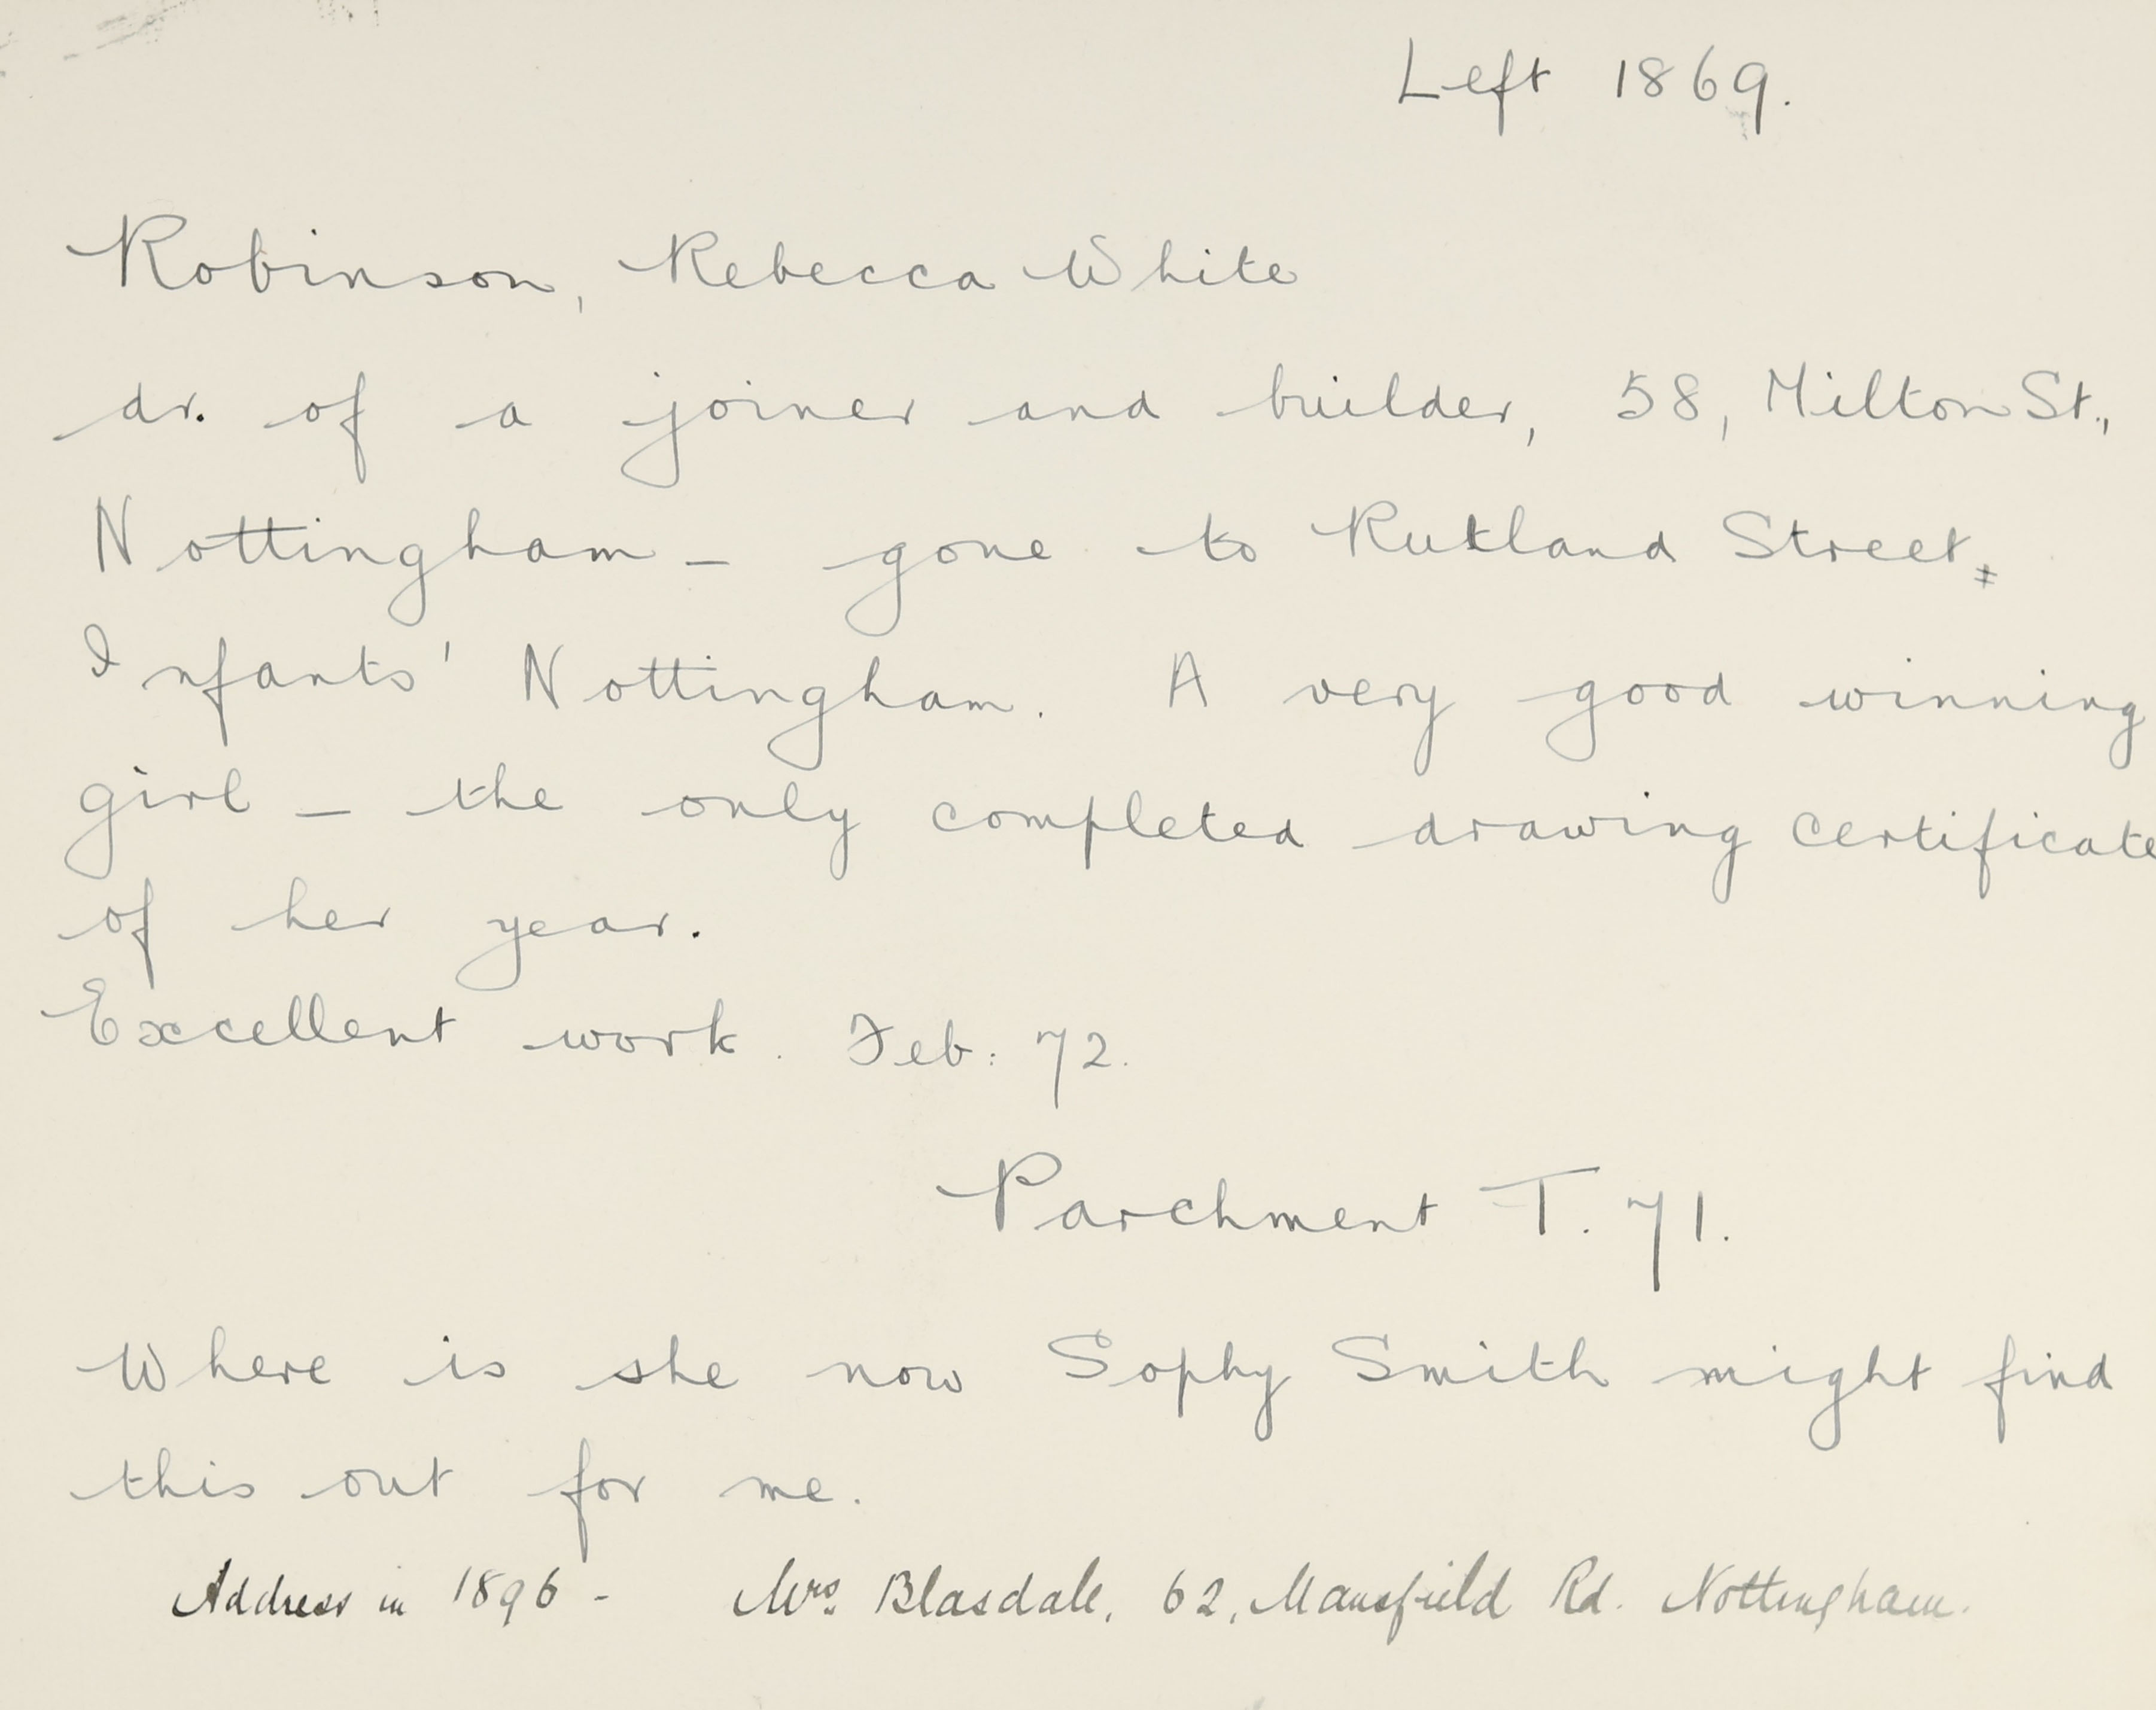 Left 1869.
Robinson, Rebecca White
dr. of a joiner and builder, 58, Milton St.,
Nottingham – gone to Rutland Street,
Infants' Nottingham. A very good winning
girl – the only completed drawing certificate
of her year.
Excellent work. Feb: 72.
Parchment T. 71.
Where is she now Sophy Smith might find
this out for me.
Address in 1896 - Mrs. Blasdale, 62, Mansfield Rd. Nottingham.